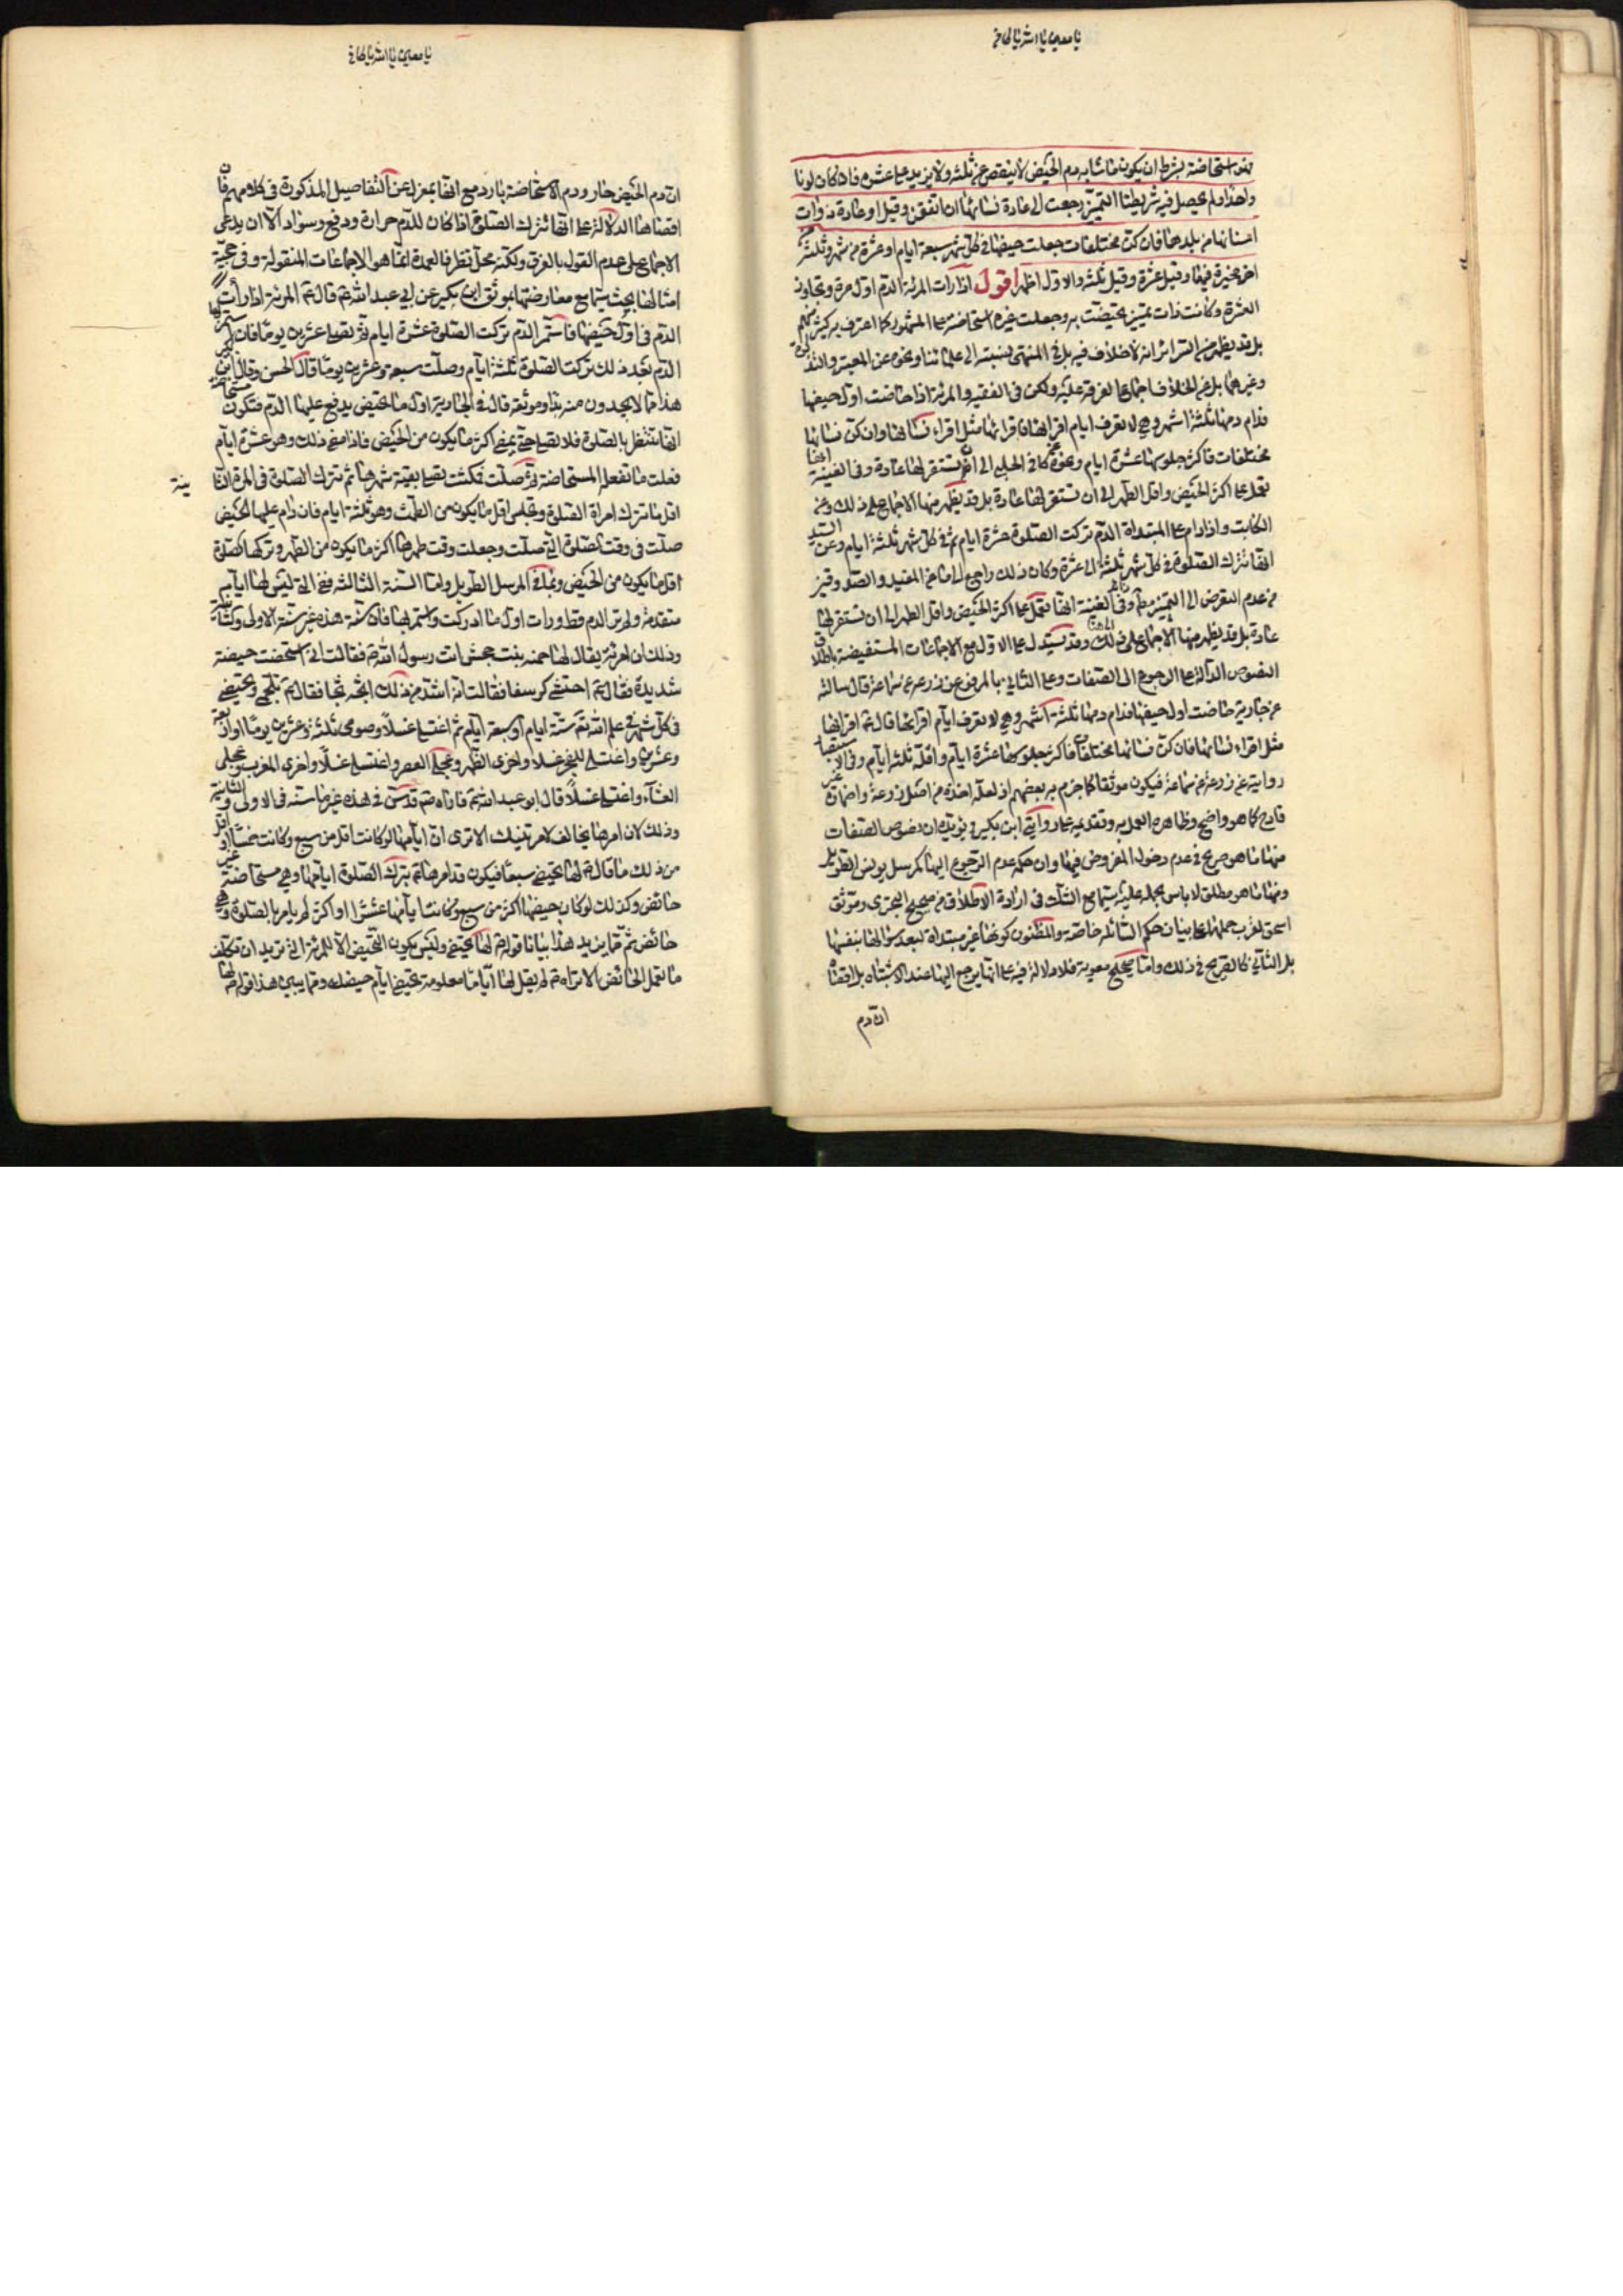 يا معين يا الله يا كافي
فهو استحاضة بشرط ان يكون ما شابه دم الحيض لا ينقص عن ثلثة ولا يزيد على عشرة فاذا كان لونا
واحدا ولم يحصل فيه شريطتا التميز رجعت الى عادة نسائها ان اتفقن وقيل او عادة ذوات
اسنانها من بلدها فان كن مختلفات جعلت حيضها في كل شهر سبعة ايام او عشرة من شهر وثلثة من
اخر مخيرة فيها وقيل عشرة وقيل ثلثة والاول اظهر اقول اذا رات المرئة الدم اول مرة وتجاوز
العشرة وكانت ذات تميز تحيضت به وجعلت غيره استحاضة على المشهور كما اعترف به كثير منهم
بل قد يظهر من السرائر انه لا خلاف فيه بل في المنتهى نسبته الى علمائنا ونحوه عن المعتبر والتذكرة
وغيرهما بل عن الخلاف اجماع الفرقة عليه ولكن في الفقيه والمرئة اذا حاضت اول حيضها
فدام دمها ثلثة اشهر وهي لا تعرف ايام اقرائها فاقرائها مثل اقراء نسائها وان كن نسائها
مختلفات فاكثر جلوسها عشرة ايام ونحوه كما في الحلبي الى ان تستقر لها عادة وفي الغنية انها
تعمل على اكثر الحيض واقل الطهر الى ان تستقر لها عادة بل قد يظهر منها الاجماع على ذلك وعن
الكاتب واذا دام على المبتداة الدم تركت الصلوة عشرة ايام ثم في كل شهر ثلثة ايام وعن السيد
انها تترك الصلوة في كل شهر ثلثة الى عشرة وكان ذلك راجع الى ما عن المفيد والصدوقين
من عدم التعرض الى التميز وفي الغنية انها تعمل على اكثر الحيض واقل الطهر الى ان تستقر لها
عادة بل قد يظهر منها الاجماع على ذلك وقد يستدل على الاول مع الاجماعات المستفيضة باطلاق
النصوص الدالة على الرجوع الى الصفات وعلى الثاني بالمرفوع عن زرعة عن سماعة قال سالته
عن جارية حاضت اول حيضها فدام دمها ثلثة اشهر وهي لا تعرف ايام اقرائها قال ع اقرائها
مثل اقراء نسائها فان كن نسائها مختلفات فاكثر جلوسها عشرة ايام واقله ثلثة ايام وفي الاستبصار
رواية عن زرعة عن سماعة فيكون موثقا كما جزم به بعضهم اذ لعله اخذه من اصل زرعة واضماره غير
قادح كما هو واضح وظاهره العمل به وتقديمه على روايتي ابن بكير ويؤيده ان نصوص الصفات
منها ما هو صريح في عدم دخول المفروض فيها وان حكمه عدم الرجوع اليها كمرسل يونس الطويل
ومنها ما هو مطلق لا باس بحمله عليه سيما مع الشك في ارادة الاطلاق من صحيح البختري وموثق
اسحق لقرب حملهما على بيان حكم السائلة خاصة والمظنون كونها غير مبتداة لبعد سؤالها بنفسها
بل الثاني كالصريح في ذلك واما صحيح معوية فلا دلالة فيه على انها يرجع اليها عند الاشتباه بل اقصاه
ان دم
يا معين يا الله يا كافي
ان دم الحيض حار ودم الاستحاضة بارد مع انها بمعزل عن التفاصيل المذكورة في كلامهم فان
اقصاها الدلالة على انها تترك الصلوة اذا كان للدم حرارة ودفع وسواد الا ان يدعى
الاجماع على عدم القول بالفرق ولكنه محل نظر فالعمدة انما هو الاجماعات المنقولة وفي حجية
امثالها بحث سيما مع معارضتها بموثق ابن بكير عن ابي عبد الله ع قال ع المرئة اذا رات
الدم في اول حيضها فاستمر الدم تركت الصلوة عشرة ايام ثم تصلي عشرين يوما فان استمر بها
الدم بعد ذلك تركت الصلوة ثلثة ايام وصلت سبعة وعشرين يوما قال الحسن وقال ابن بكير
هذا مما لا يجدون منه بدا وموثقه قال في الجارية اول ما تحيض يدفع عليها الدم فتكون مستحاضة
انها تنتظر بالصلوة فلا تصلي حتى يمضي اكثر ما يكون من الحيض فاذا مضى ذلك وهو عشرة ايام
فعلت ما تفعله المستحاضة ثم صلت فمكثت تصلي بقية شهرها ثم تترك الصلوة في المرة الثا
نية
اقل ما تترك امراة الصلوة وتجلس اقل ما يكون من الطمث وهو ثلثة ايام فان دام عليها الحيض
صلت في وقت الصلوة التي صلت وجعلت وقت طهرها اكثر ما يكون من الطهر وتركها الصلوة
اقل ما يكون من الحيض وبما في المرسل الطويل واما السنة الثالثة فهي التي ليس لها ايام
متقدمة ولم تر الدم قط ورات اول ما ادركت واستمر بها فان سنة هذه غير سنة الاولى والثانية
وذلك ان امرئة يقال لها حمنة بنت جحش اتت رسول الله ص فقالت اني استحضت حيضة
شديدة فقال ص احتشي كرسفا فقالت انه اشد من ذلك اني اثجه ثجا فقال ص تلجمي وتحيضي
في كل شهر في علم الله تع ستة ايام او سبعة ايام ثم اغتسلي غسلا وصومي ثلثة وعشرين يوما او اربعة
وعشرين واغتسلي للفجر غسلا واخرى الظهر وعجلي العصر واغتسلي غسلا واخرى المغرب وعجلي
العشاء واغتسلي غسلا قال ابو عبد الله ع فاراه ص قد سن في هذه غير ما سنه في الاولى والثانية
وذلك لان امرها يخالف لامر تينك الا ترى ان ايامها لو كانت اقل من سبع وكانت خمسا او اقل
من ذلك ما قال ص لها تحيضي سبعا فيكون قد امرها ص بترك الصلوة اياما وهي مستحاضة غير
حائض وكذلك لو كان حيضها اكثر من سبع وكانت ايامها عشرا او اكثر لم يامرها بالصلوة وهي
حائض ثم مما يزيد هذا بيانا قوله ص لها تحيضي وليس يكون التحيض الا للمرئة التي تريد ان تكلف
ما تعمل الحائض الا تراه ص لم يقل لها اياما معلومة تحيضي ايام حيضك ومما يبين هذا قوله ص لها